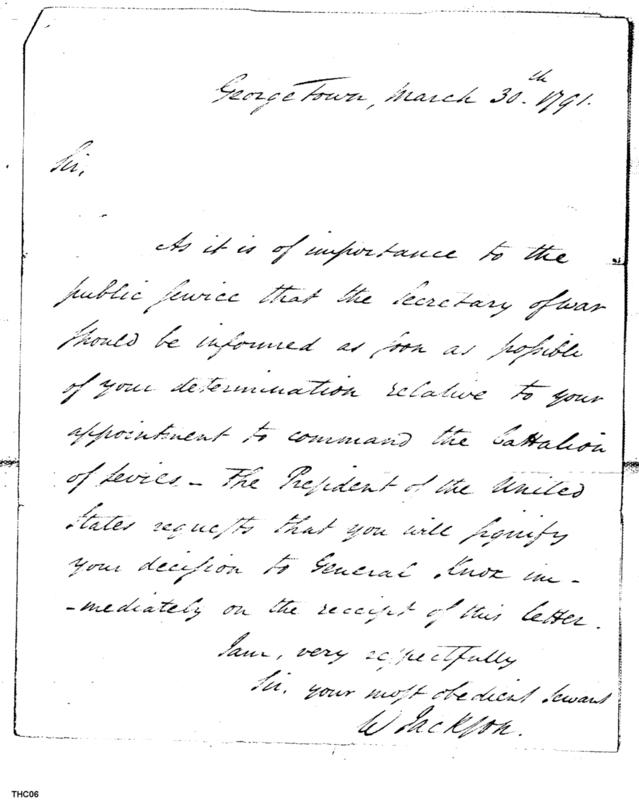 George Town, March 30.th 1791.
Sir,
As it is of importance to the
public service that the Secretary of war
should be informed as soon as possible
of your determination relative to your
appointment to command the battalion
of Levies – The President of the United
States requests that you will signify
your decision to General Knox im-
-mediately on the receipt of this letter.
I am, very respectfully
Sir, your most obedient servant
W Jackson.
THC06